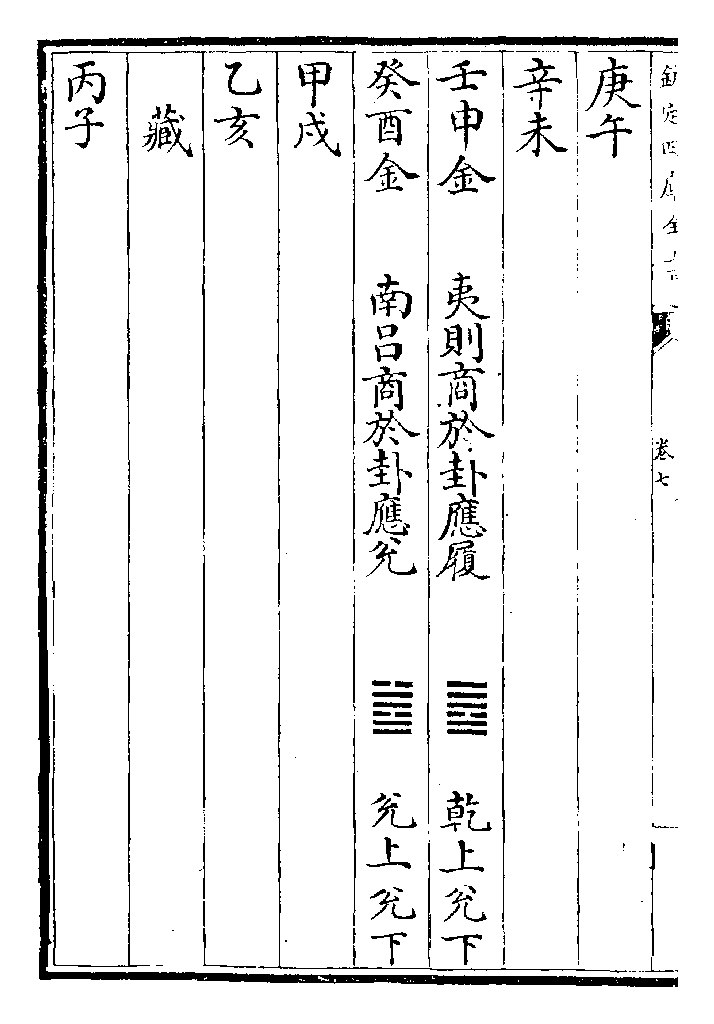 欽定四庫全書
卷七
庚午
辛未
壬申金 夷則商於卦應履 ䷉ 乾上兊下
癸酉金 南呂商於卦應兊 ䷹ 兊上兊下
甲戌
乙亥
藏
丙子